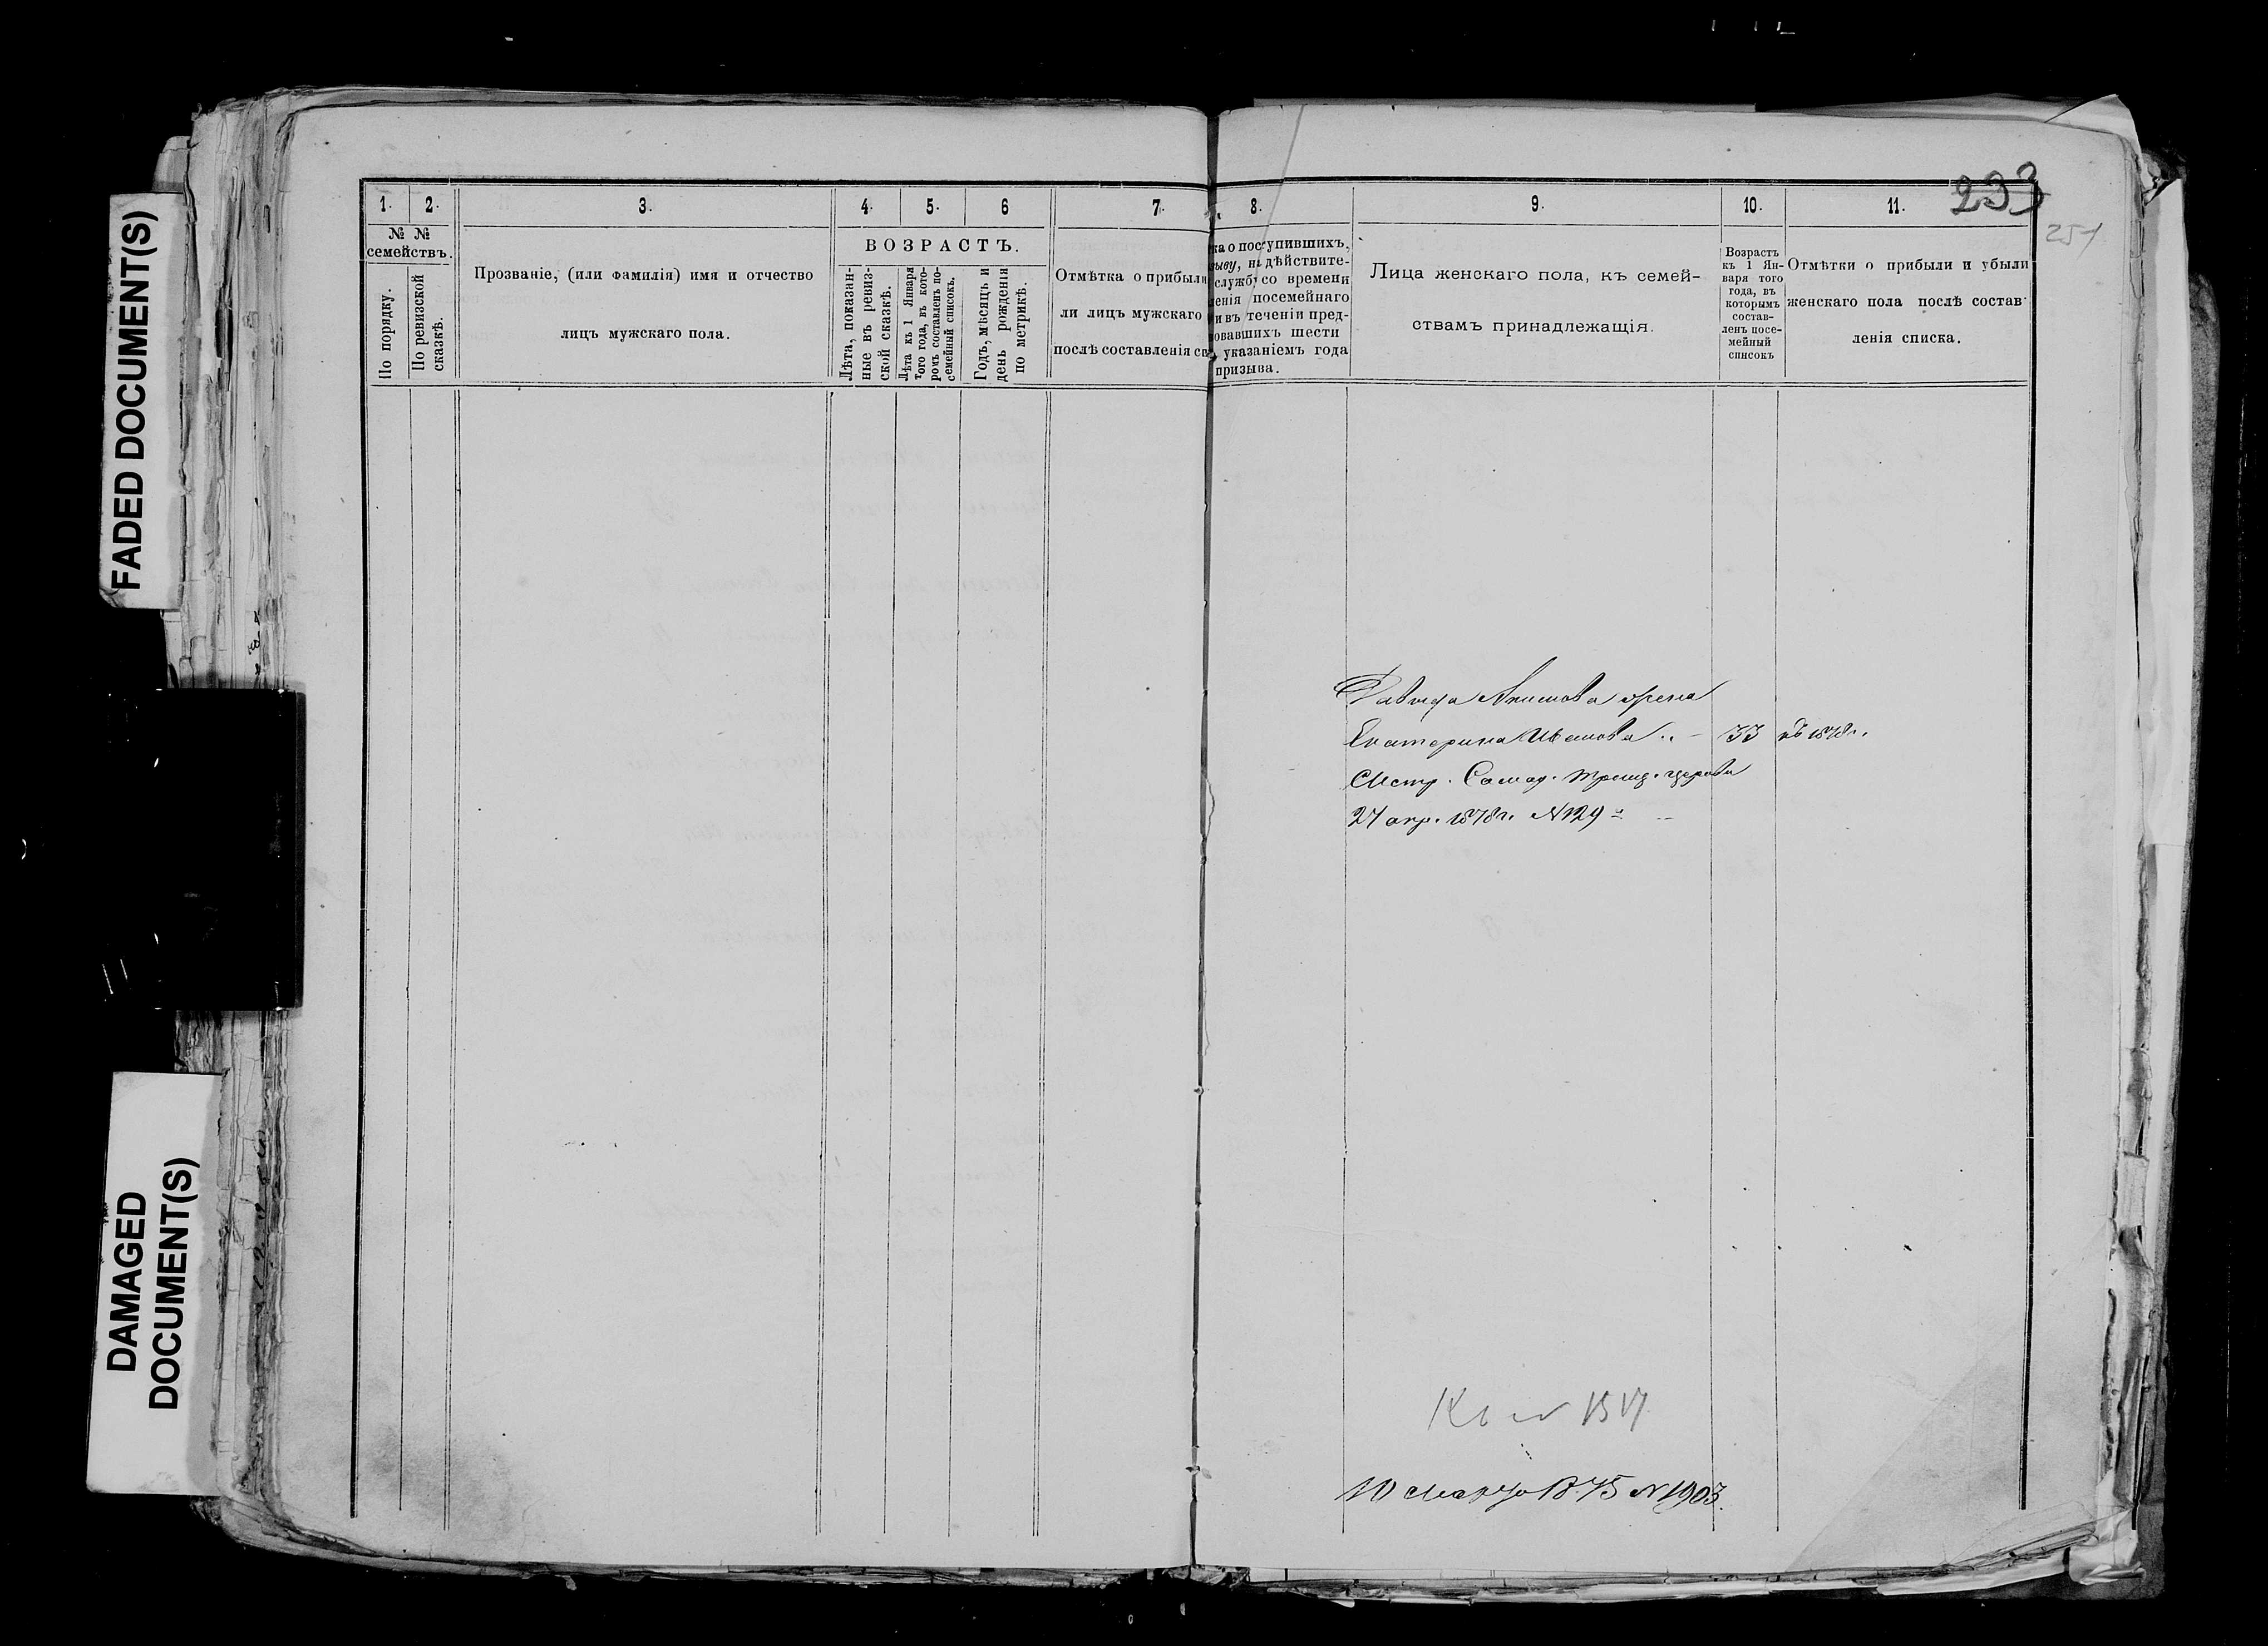 FADED DOCUMENT(S)
DAMAGED
DOCUMENT(S)
233
251
1. 2. 3. 4. 5. 6 7. 8. 9. 10. 11.
№ №
семействъ.
По порядку.
По ревизской
сказкѣ.
Прозваніе, (или фамилія) имя и отчество
лицъ мужскаго пола.
ВОЗРАСТЪ.
Лѣта, показан-
ные въ ревиз-
ской сказкѣ.
Лѣта къ 1 Января
того года, въ кото-
ромъ составленъ по-
семейный списокъ.
Годъ, мѣсяцъ и
день рожденія
по метрикѣ.
Отмѣтка о прибыли
ли лицъ мужскаго
послѣ составленія сп
ка о поступившихъ,
зыву, на дѣйствите-
службу со времени
ленія посемейнаго
и въ теченіи пред-
овавшихъ шести
указаніемъ года
призыва.
Лица женскаго пола, къ семей-
ствамъ принадлежащія.
Возрастъ
къ 1 Ян-
варя того
года, въ
которымъ
состав-
ленъ посе-
мейный
списокъ
Отмѣтки о прибыли и убыли
женскаго пола послѣ состав-
ленія списка.
Давыда Акимова жена
Екатерина Иванова 33 къ 1878 г.
Метр. Самар. Троиц. церкви
27 апр. 1878 г. №129
1517
10 Марта 1875 №1903.